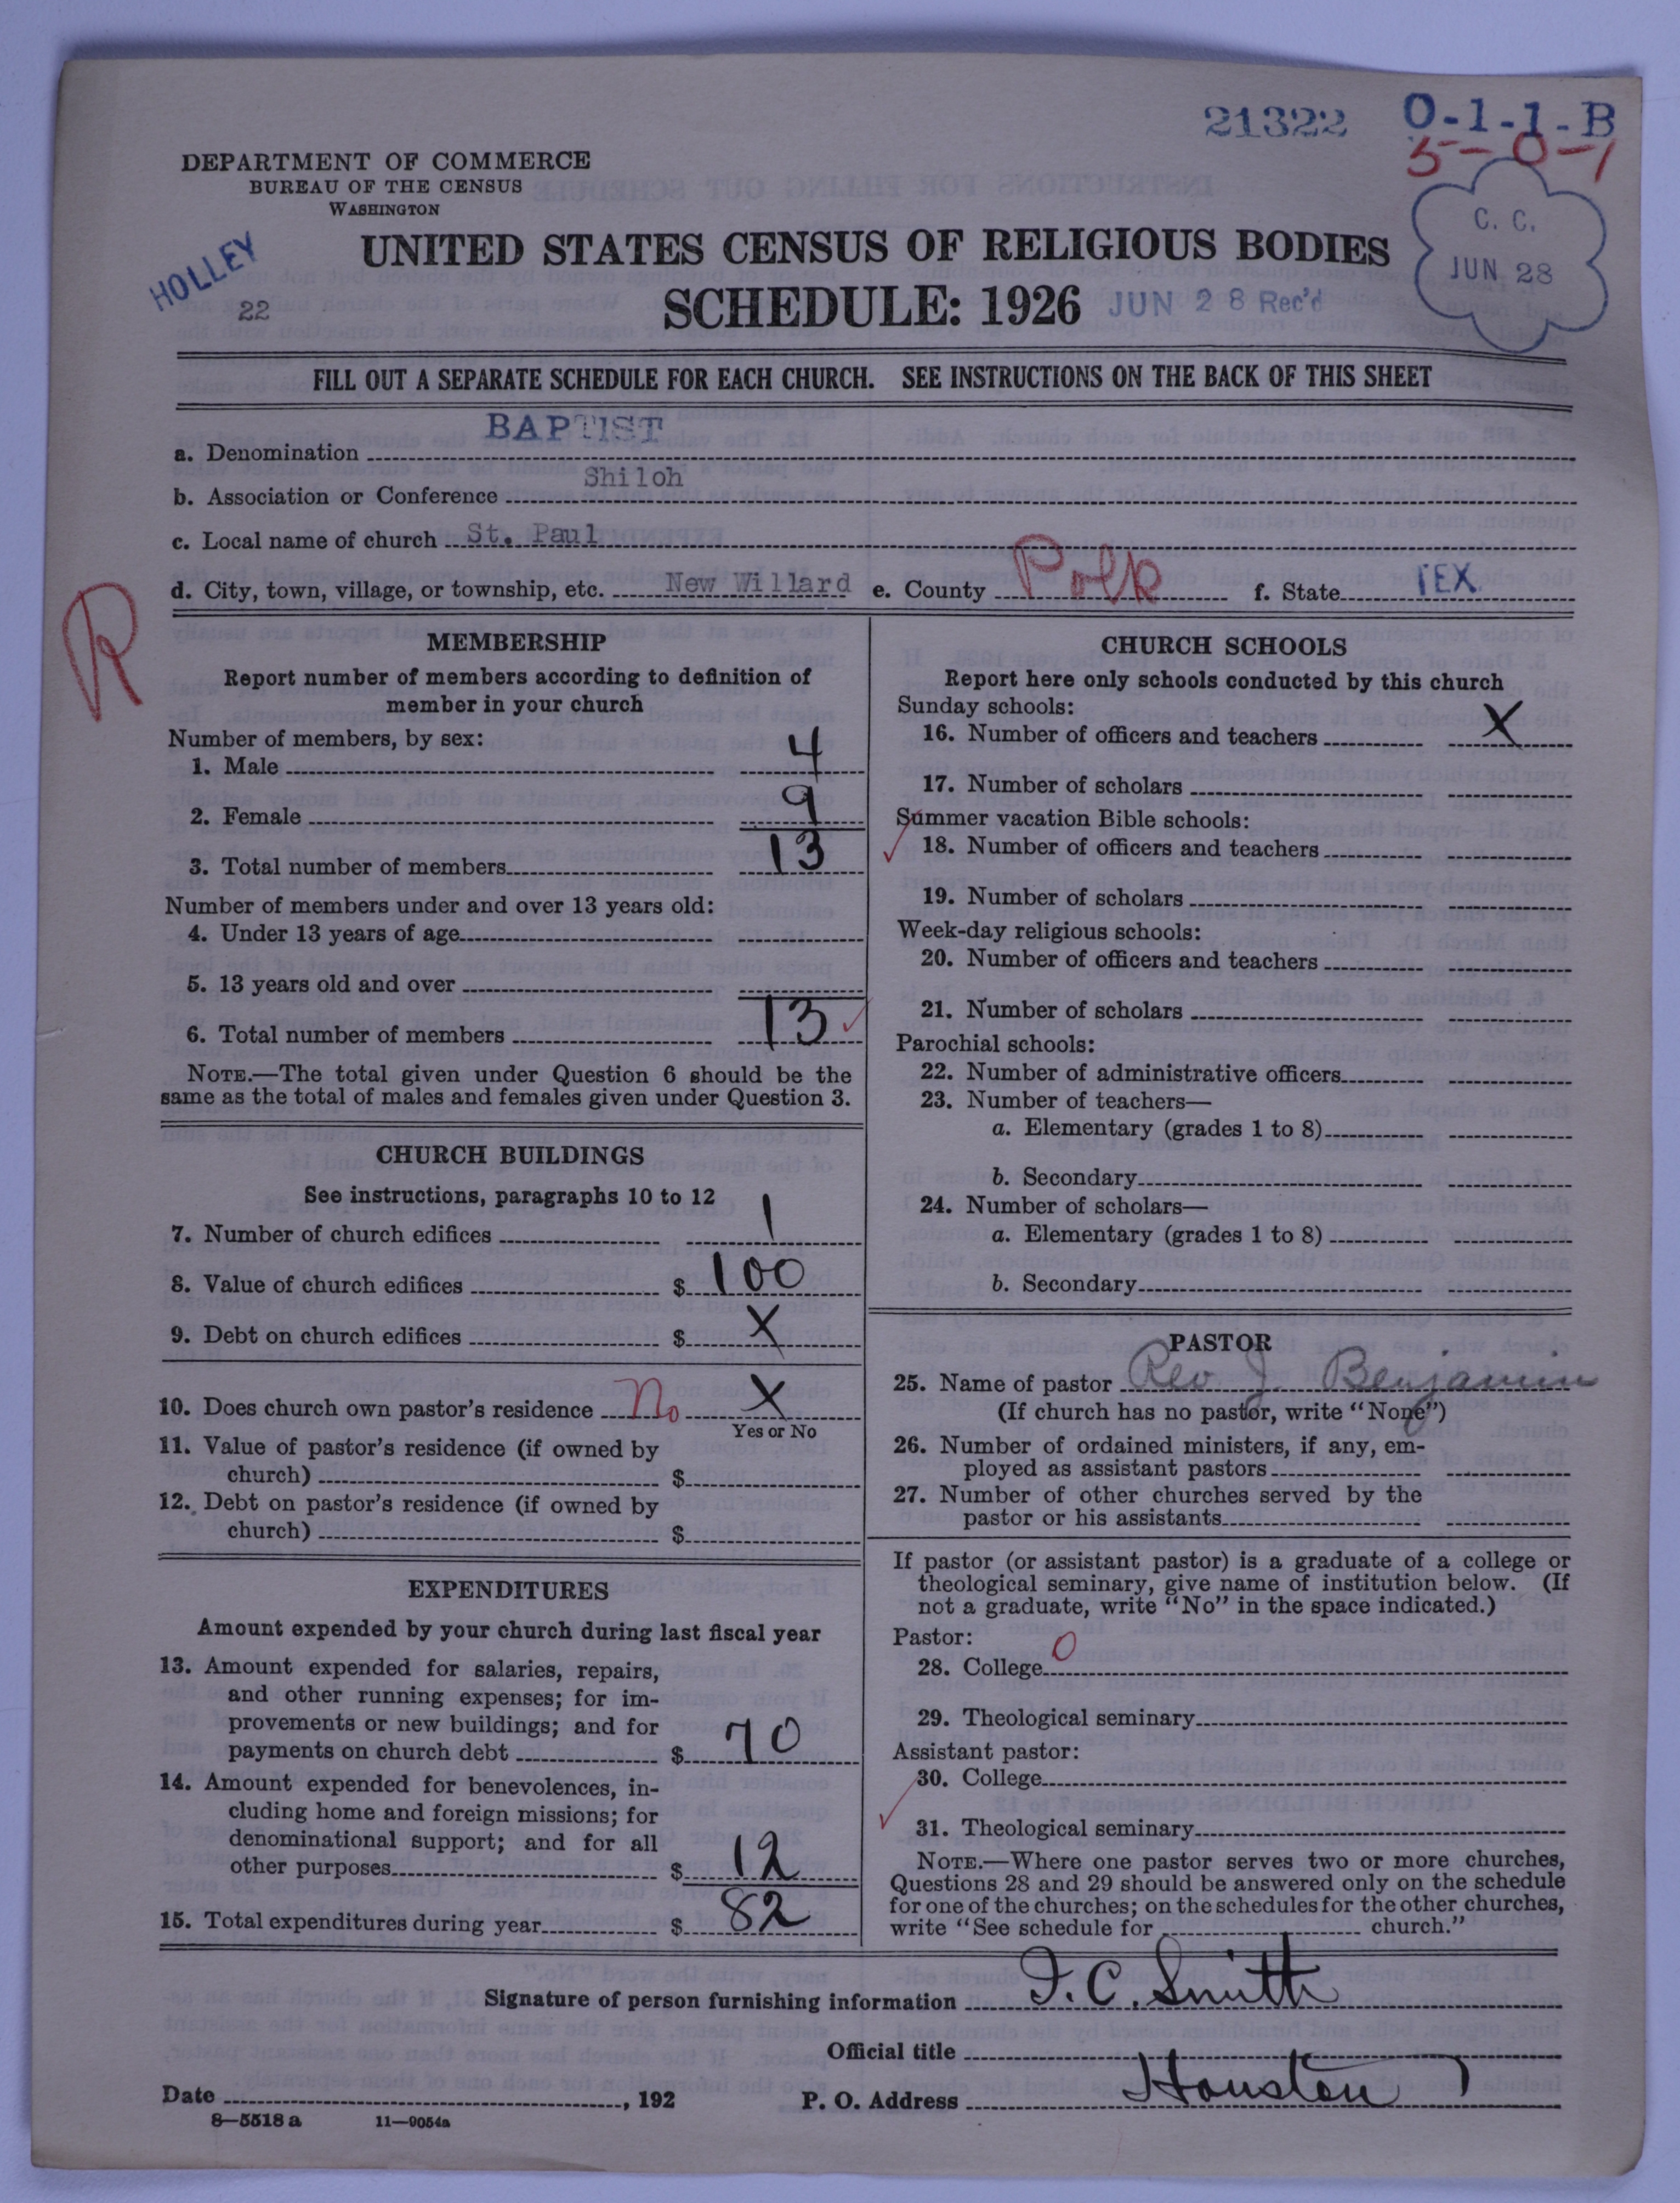 21322 0-1-1-B
5-0-1
DEPARTMENT OF COMMERCE
BUREAU OF THE CENSUS
WASHINGTON
HOLLEY
22
C. C.
JUN 28
UNITED STATES CENSUS OF RELIGIOUS BODIES
SCHEDULE: 1926 JUN 28 Rec'd
FILL OUT A SEPARATE SCHEDULE FOR EACH CHURCH. SEE INSTRUCTIONS ON THE BACK OF THIS SHEET
a. Denomination BAPTIST
b. Association or Conference Shiloh
c. Local name of church St. Paul
d. City, town, village, or township, etc. New Willard e. County Polk f. State TEX.
R
MEMBERSHIP
Report number of members according to definition of
member in your church
Number of members, by sex:
1. Male 4
2. Female 9
3. Total number of members 13
Number of members under and over 13 years old:
4. Under 13 years of age
5. 13 years old and over
6. Total number of members 13
NOTE.—The total given under Question 6 should be the
same as the total of males and females given under Question 3.
CHURCH BUILDINGS
See instructions, paragraphs 10 to 12
7. Number of church edifices 1
8. Value of church edifices $ 100
9. Debt on church edifices $ X
10. Does church own pastor's residence No X
Yes or No
11. Value of pastor's residence (if owned by
church) $
12. Debt on pastor's residence (if owned by
church) $
EXPENDITURES
Amount expended by your church during last fiscal year
13. Amount expended for salaries, repairs,
and other running expenses; for im-
provements or new buildings; and for
payments on church debt $ 70
14. Amount expended for benevolences, in-
cluding home and foreign missions; for
denominational support; and for all
other purposes $ 12
15. Total expenditures during year $ 82
CHURCH SCHOOLS
Report here only schools conducted by this church
Sunday schools:
16. Number of officers and teachers X
17. Number of scholars
Summer vacation Bible schools:
18. Number of officers and teachers
19. Number of scholars
Week-day religious schools:
20. Number of officers and teachers
21. Number of scholars
Parochial schools:
22. Number of administrative officers
23. Number of teachers—
a. Elementary (grades 1 to 8)
b. Secondary
24. Number of scholars—
a. Elementary (grades 1 to 8)
b. Secondary
PASTOR
25. Name of pastor Rev J. Benjamin
(If church has no pastor, write "None")
26. Number of ordained ministers, if any, em-
ployed as assistant pastors
27. Number of other churches served by the
pastor or his assistants
If pastor (or assistant pastor) is a graduate of a college or
theological seminary, give name of institution below. (If
not a graduate, write "No" in the space indicated.)
Pastor:
28. College 0
29. Theological seminary
Assistant pastor:
30. College
31. Theological seminary
NOTE.—Where one pastor serves two or more churches,
Questions 28 and 29 should be answered only on the schedule
for one of the churches; on the schedules for the other churches,
write "See schedule for church."
Signature of person furnishing information J. C. Smith
Official title
Date , 192 P. O. Address Houston T
8—5518 a 11—9054a